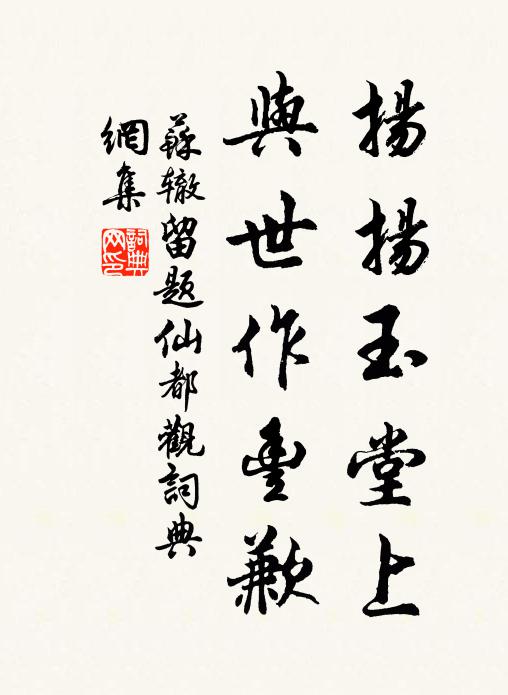 揚揚玉堂上
與世作豐歉
蘇辙留题仙都觀詞典
網集
詞典网印